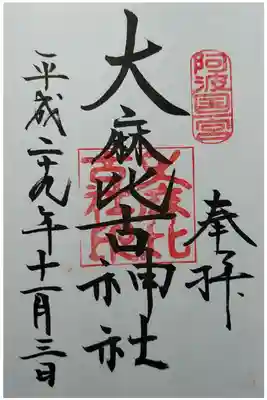 阿波国一宮
奉拝
大麻比古神社
平成二十九年十一月三日